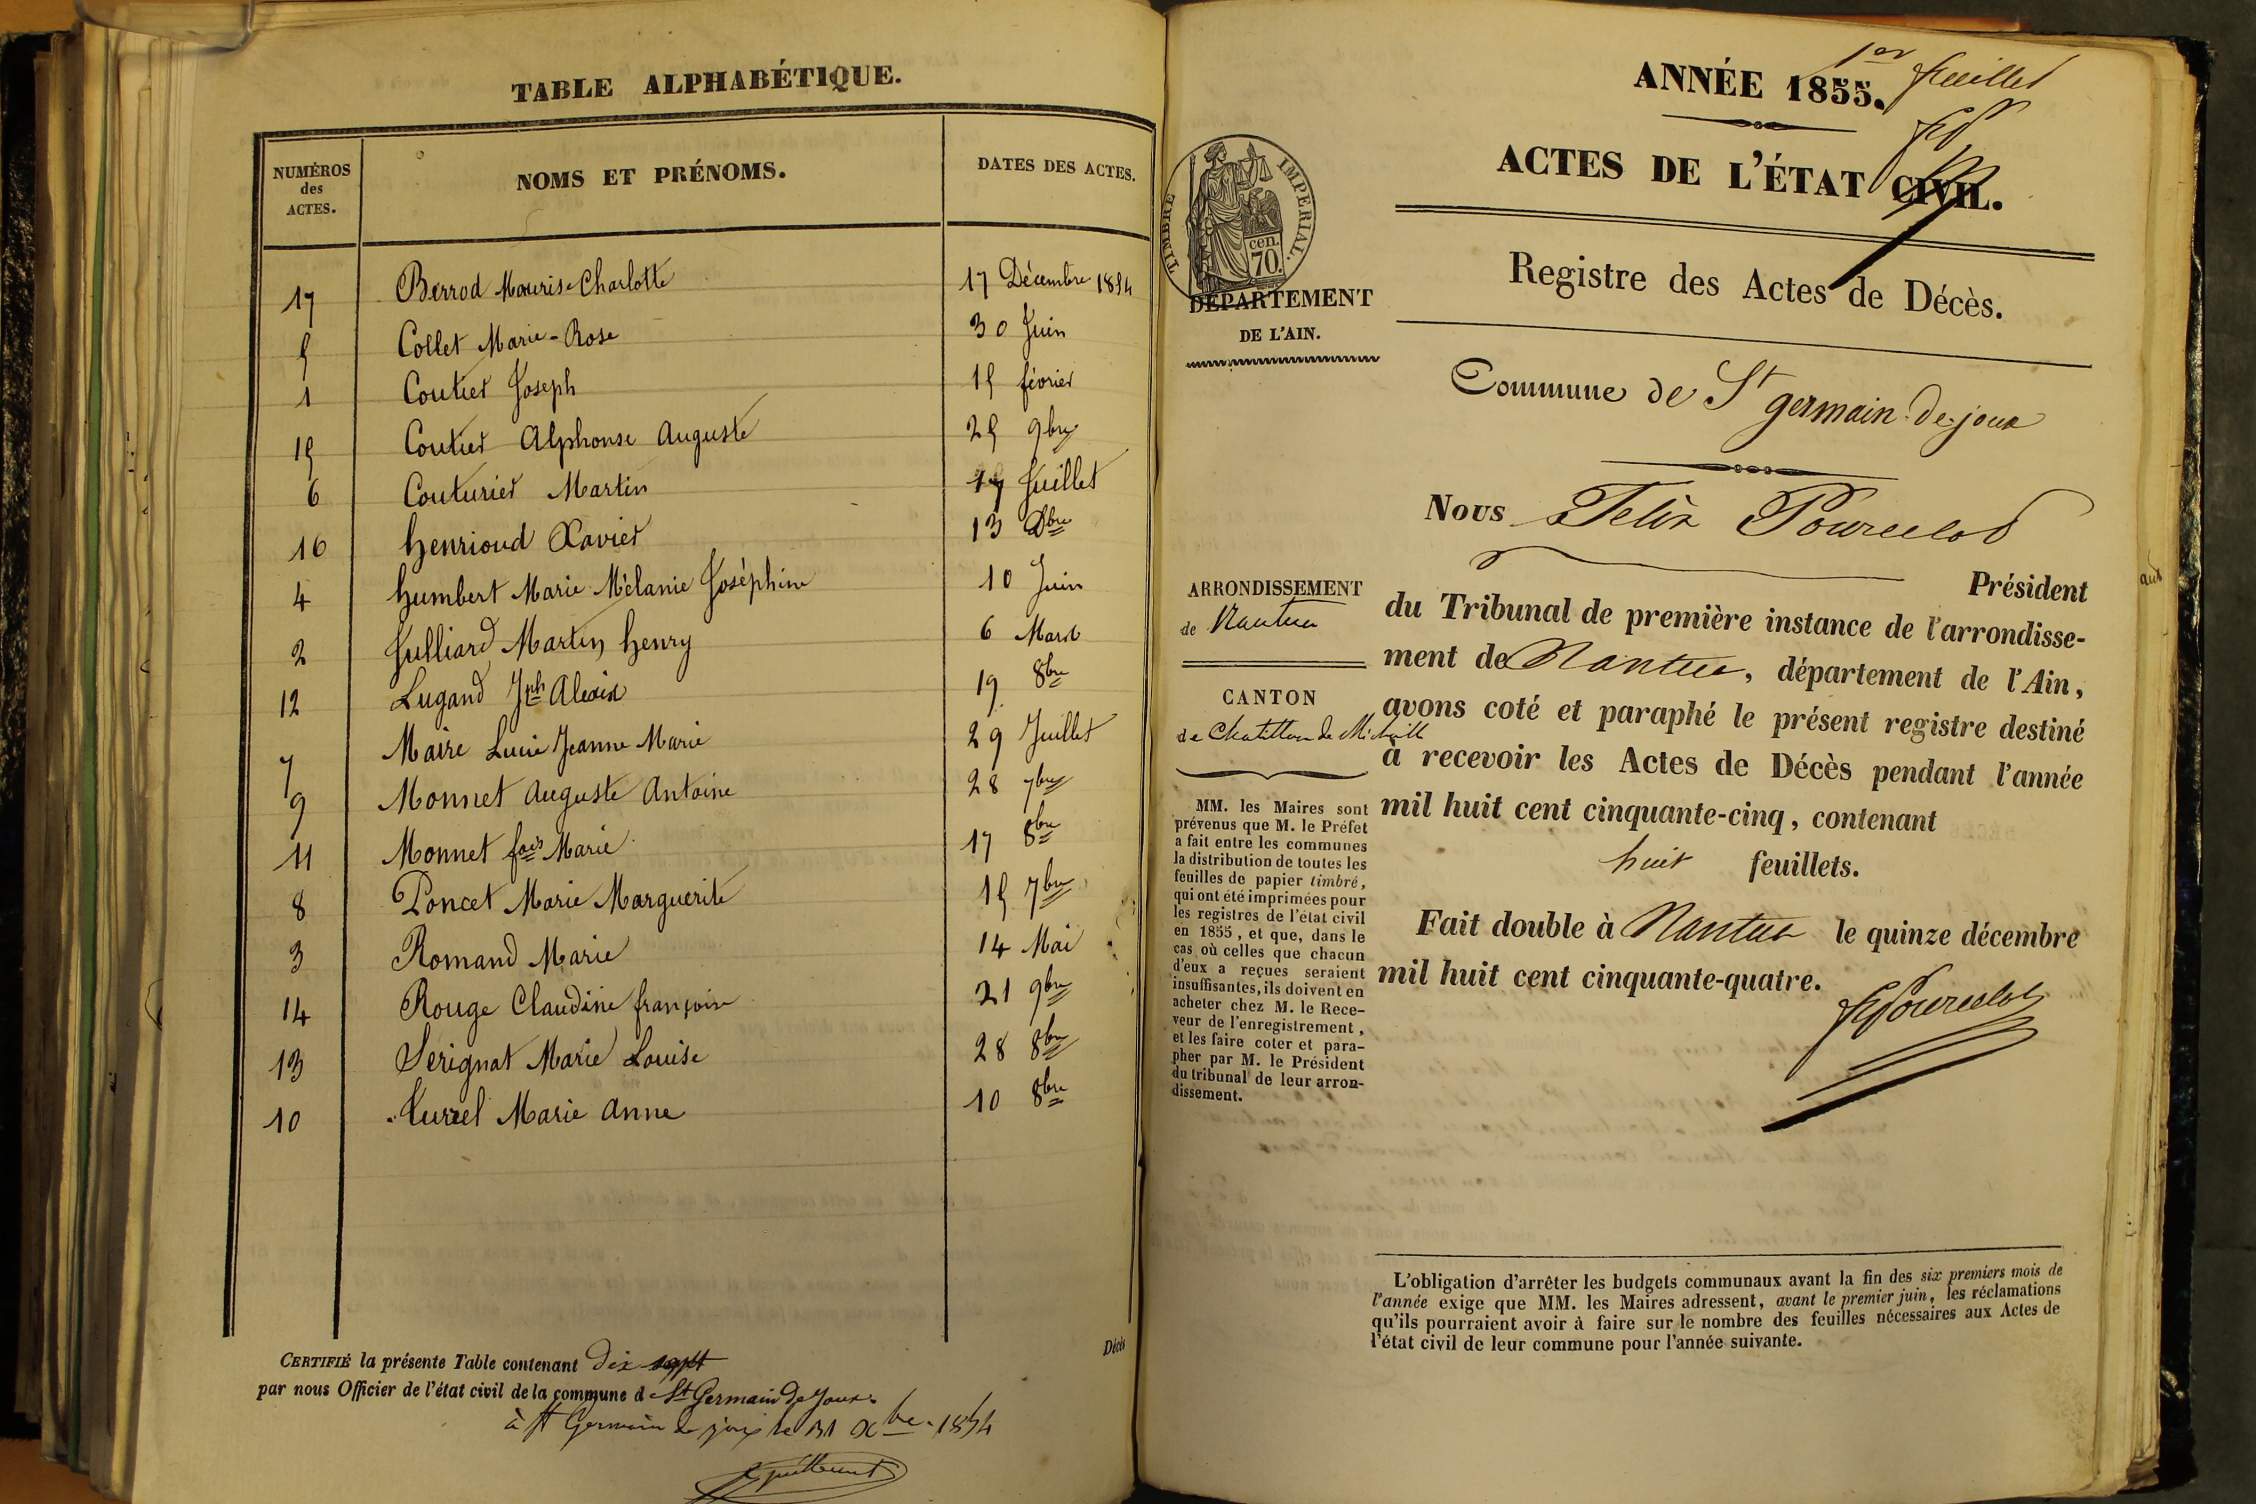 TABLE ALPHABÉTIQUE.
NUMÉROS des ACTES. NOMS ET PRÉNOMS. DATES DES ACTES.
17 Berrod Mourise Charlotte 17 Décembre 1854
5 Collet Marie-Rose 30 Juin
1 Coutier Joseph 15 février
15 Coutier Alphonse Auguste 25 9bre
6 Couturier Martin Juillet
16 henrioud Xavier 13 Xbre
4 humbert Marie Mélanie Joséphine 10 Juin
2 Julliard Martin henry 6 Mars
12 Lugand Jph Alexis 19 8bre
7 Maire Lucie Jeanne Marie 29 Juillet
9 Monnet Auguste Antoine 28 7bre
11 Monnet fois Marie 17 8bre
8 Poncet Marie Marguerite 15 7bre
3 Romand Marie 14 Mai
14 Rouge Claudine françoise 21 9bre
13 Serignat Marie Louise 28 8bre
10 Marie Anne 10 8bre
Décès
CERTIFIÉ la présente Table contenant dix-sept
par nous Officier de l'état civil de la commune d St Germain de Joux
à St Germain de joux le 31 Xbre 1854
1er feuillet
ANNÉE 1855.
ACTES DE L'ÉTAT CIVIL.
TIMBRE IMPÉRIAL.
cen.
70.
Registre des Actes de Décès.
DÉPARTEMENT
DE L'AIN.
Commune de St germain-de-joux
Nous Felix Pourcelot
Président
du Tribunal de première instance de l'arrondisse-
ment de Nantua, département de l'Ain,
avons coté et paraphé le présent registre destiné
à recevoir les Actes de Décès pendant l'année
mil huit cent cinquante-cinq, contenant
huit feuillets.
Fait double à Nantua le quinze décembre
mil huit cent cinquante-quatre.
Pourcelot
ARRONDISSEMENT
de Nantua
CANTON
de Chatillon de Michaille
MM. les Maires sont
prévenus que M. le Préfet
a fait entre les communes
la distribution de toutes les
feuilles de papier timbré,
qui ont été imprimées pour
les registres de l'état civil
en 1855, et que, dans le
cas où celles que chacun
d'eux a reçues seraient
insuffisantes, ils doivent en
acheter chez M. le Rece-
veur de l'enregistrement,
et les faire coter et para-
pher par M. le Président
du tribunal de leur arron-
dissement.
L'obligation d'arrêter les budgets communaux avant la fin des six premiers mois de
l'année exige que MM. les Maires adressent, avant le premier juin, les réclamations
qu'ils pourraient avoir à faire sur le nombre des feuilles nécessaires aux Actes de
l'état civil de leur commune pour l'année suivante.